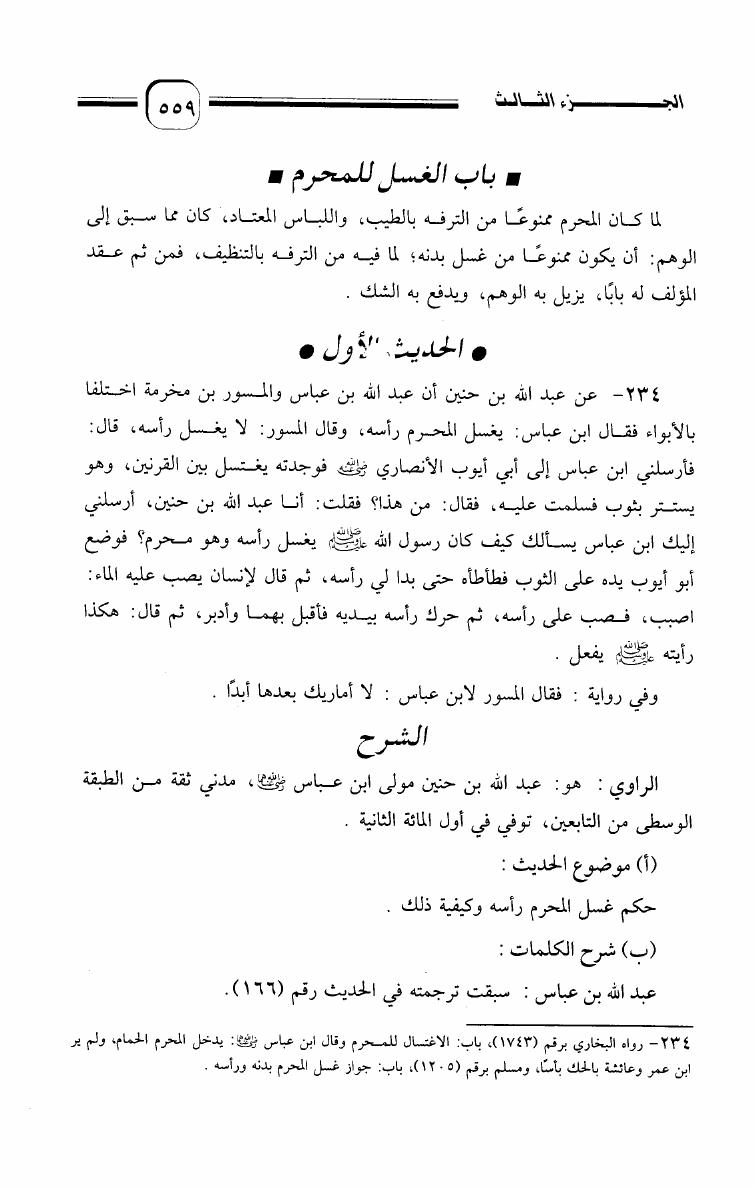 الجــــــزء الثــالث
٥٥٩
■ باب الغسل للمحرم ■
لما كــان المحرم ممنوعًـا من الترفـه بالطيب، واللبـاس المعتـاد، كان مما سـبق إلى
الوهم: أن يكون ممنوعًـا من غسل بدنه؛ لما فيـه من الترفـه بالتنظيف، فمن ثم عـقد
المؤلف له بابًا، يزيل به الوهم، ويدفع به الشك .
● الحديث الأول ●
٢٣٤- عن عبد الله بن حنين أن عبد الله بن عباس والمـسور بن مخرمة اخـتلفا
بالأبواء فقـال ابن عباس: يغسل المحـرم رأسه، وقال المسور: لا يغـسل رأسه، قال:
فأرسلني ابن عباس إلى أبي أيوب الأنصاري رضي الله عنه فوجدته يغـتسل بين القرنين، وهو
يستـتر بثوب فسلمت عليـه، فقال: من هذا؟ فقلت: أنـا عبد الله بن حنين، أرسلني
إليك ابن عباس يسـألك كيف كان رسول الله ﷺ يغسل رأسه وهو مـحرم؟ فوضع
أبو أيوب يده على الثوب فطأطأه حتى بدا لي رأسه، ثم قال لإنسان يصب عليه الماء:
اصبب، فـصب على رأسه، ثم حرك رأسه بيـديه فأقبل بهمـا وأدبر، ثم قال: هكذا
رأيته ﷺ يفعل .
وفي رواية : فقال المسور لابن عباس : لا أماريك بعدها أبدًا .
الشرح
الراوي : هو: عبد الله بن حنين مولى ابن عـباس رضي الله عنهما، مدني ثقة مـن الطبقة
الوسطى من التابعين، توفي في أول المائة الثانية .
(أ) موضوع الحديث :
حكم غسل المحرم رأسه وكيفية ذلك .
(ب) شرح الكلمات :
عبد الله بن عباس : سبقت ترجمته في الحديث رقم (١٦٦).
٢٣٤- رواه البخاري برقم (١٧٤٣)، باب: الاغتسال للمـحرم وقال ابن عباس رضي الله عنهما: يدخل المحرم الحمام، ولم ير
ابن عمر وعائشة بالحك بأسًا، ومسلم برقم (١٢٠٥)، باب: جواز غسل المحرم بدنه ورأسه .